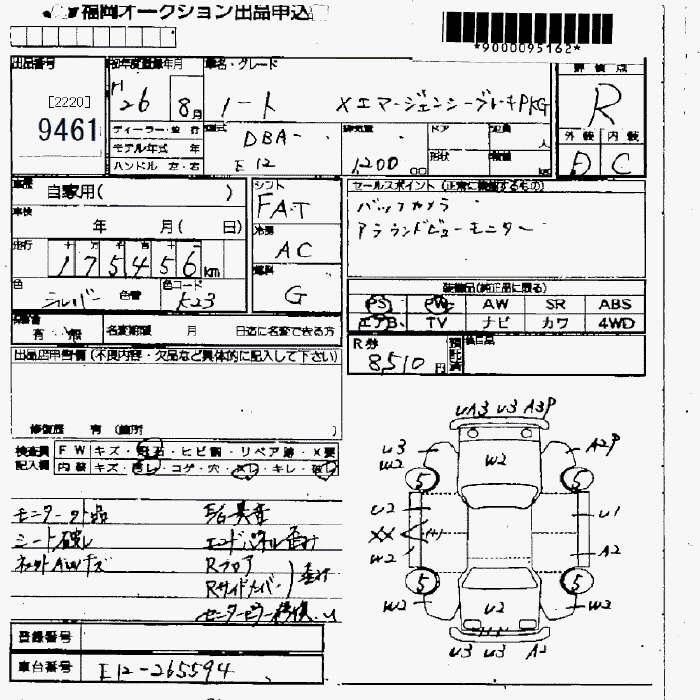 福岡オークション出品申込
*9000095162*
出品番号
[2220]
9461
初年度登録年月
H26 8月
車名・グレード
ノート XエマージェンシーブレーキPKG
評価点
R
外装 内装
D C
ディーラー・並行
モデル年式 年
ハンドル 左・右
型式
DBA-
E12
排気量
1,200 cc
ドア
形状
定員
人
積載
kg
車歴
自家用( )
車検
年 月( 日)
走行
十 万 千 百 十 一
1 7 5 4 5 6 km
色
シルバー
色替
色コード
K23
シフト
FAT
冷房
AC
燃料
G
セールスポイント(正常に機能するもの)
バックカメラ
アラウンドビューモニター
装備品(純正品に限る)
PS PW AW SR ABS
エアB TV ナビ カワ 4WD
有・無
名変期限 月 日迄に名変できる方
R券
8,510 円
預託済
出品店申告欄(不良内容・欠品など具体的に記入して下さい)
修復歴 有(箇所
検査員記入欄
FW キズ・飛石・ヒビ割・リペア跡・X要
内装 キズ・汚レ・コゲ・穴・スレ・キレ・破レ
モニター欠品
シート破レ
ネットAWキズ
E/G異音
エンドパネル歪み
Rフロア
Rサイドメンバー
歪み
センターピラー修復
登録番号
車台番号
E12-265594
UA3 U3 A3P
U3
W2
A2P
W2
5 5
U2
U1
XX
(+)
W2
A2
5 5
W2
U2
W2
U3 U3 A2